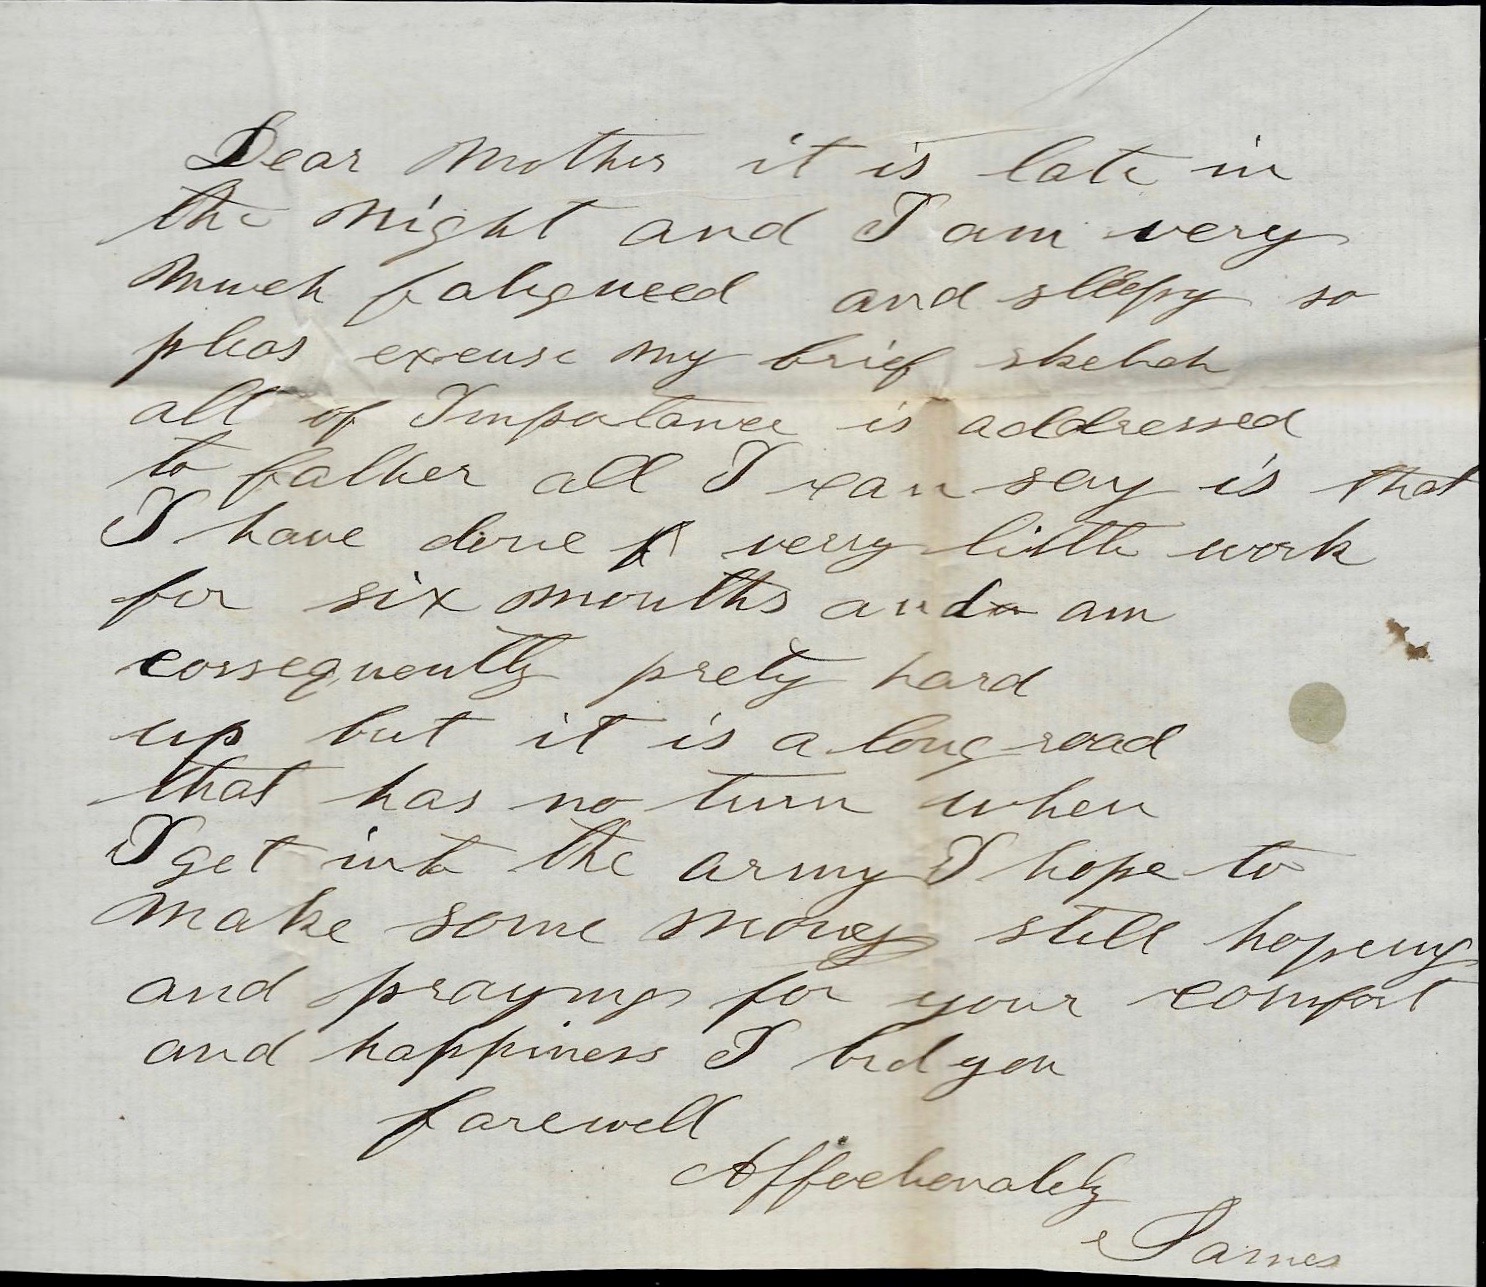 Dear Mother it is late in
the night and I am very
much fatigueed and sleepy so
pleas excuse my brief sketch
all of Impotance is addressed
to father all I can say is that
I have done very little work
for six months and am
consequently prety hard
up but it is a long road
that has no turn when
I get into the army I hope to
make some money still hopeing
and praying for your comfort
and happiness I bid you
farewell
Affectionately
James